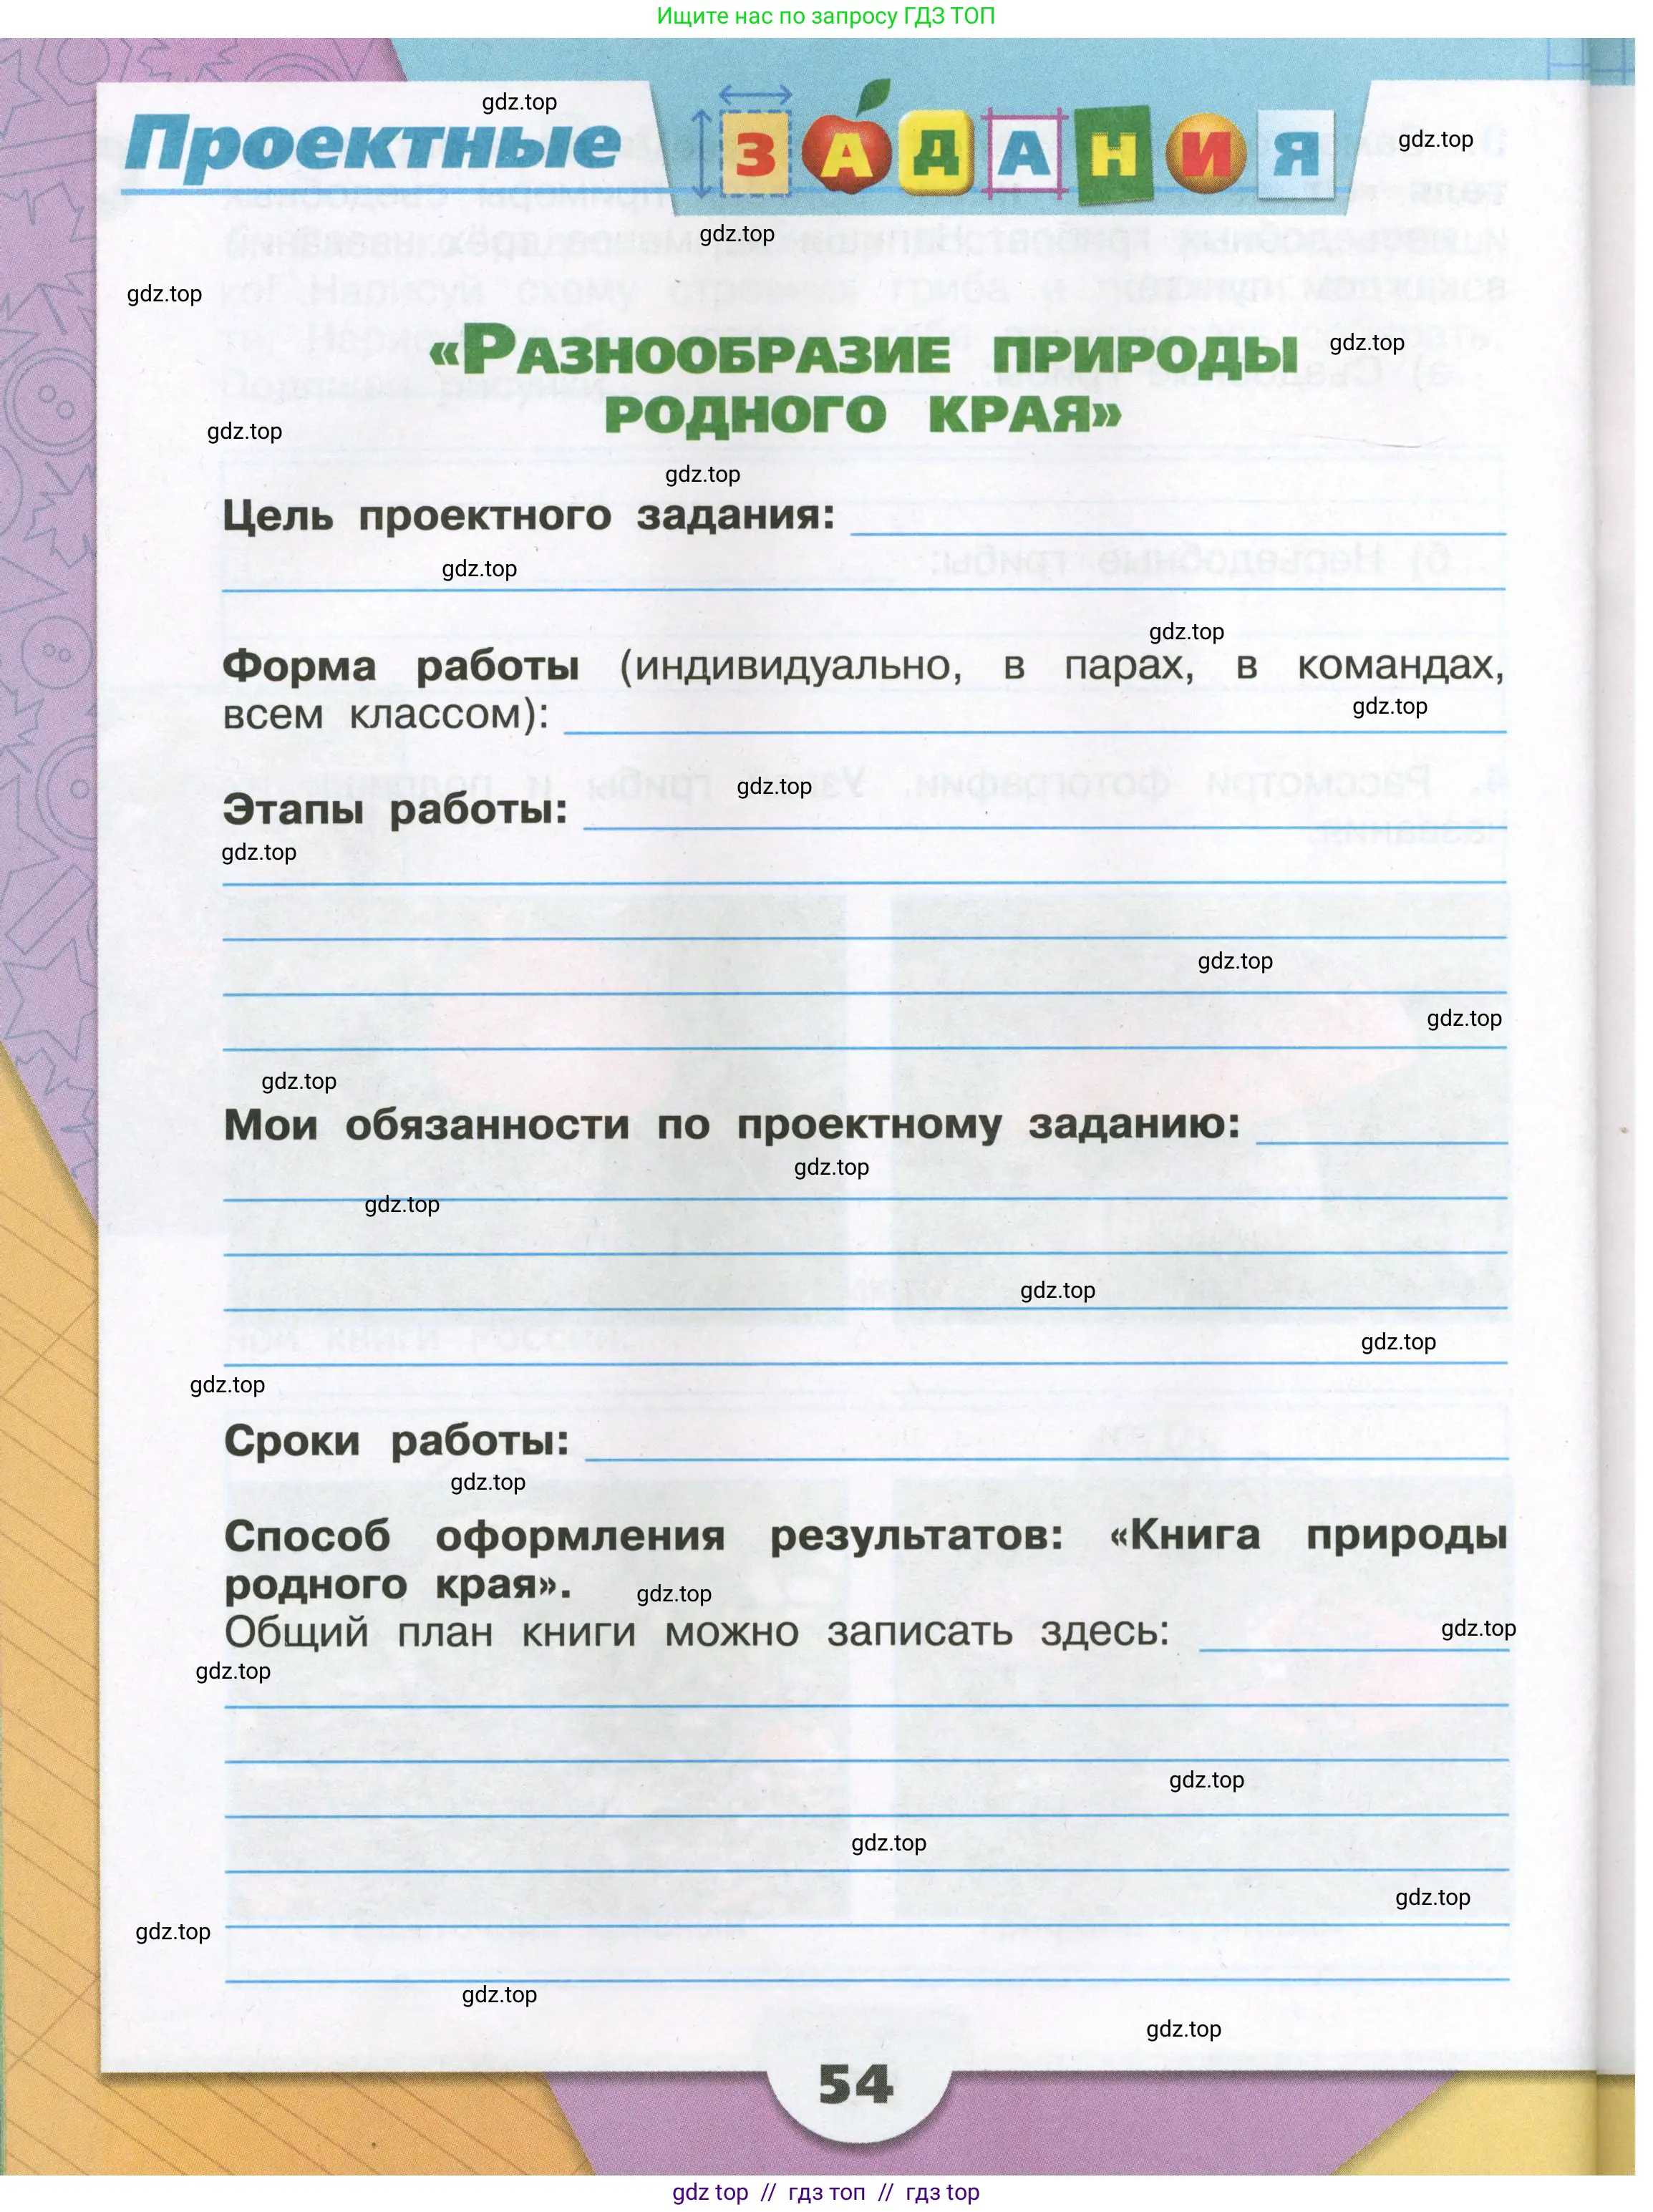 Ищите нас по запросу ГДЗ ТОП
gdz.top
Проектные ЗАДАНИЯ
gdz.top
gdz.top
gdz.top
«РАЗНООБРАЗИЕ ПРИРОДЫ
gdz.top
РОДНОГО КРАЯ»
gdz.top
gdz.top
Цель проектного задания:
gdz.top
gdz.top
Форма работы (индивидуально, в парах, в командах,
всем классом):
gdz.top
gdz.top
Этапы работы:
gdz.top
gdz.top
gdz.top
gdz.top
Мои обязанности по проектному заданию:
gdz.top
gdz.top
gdz.top
gdz.top
gdz.top
Сроки работы:
gdz.top
Способ оформления результатов: «Книга природы
родного края».
gdz.top
Общий план книги можно записать здесь:
gdz.top
gdz.top
gdz.top
gdz.top
gdz.top
gdz.top
gdz.top
gdz.top
54
gdz top // гдз топ // гдз top